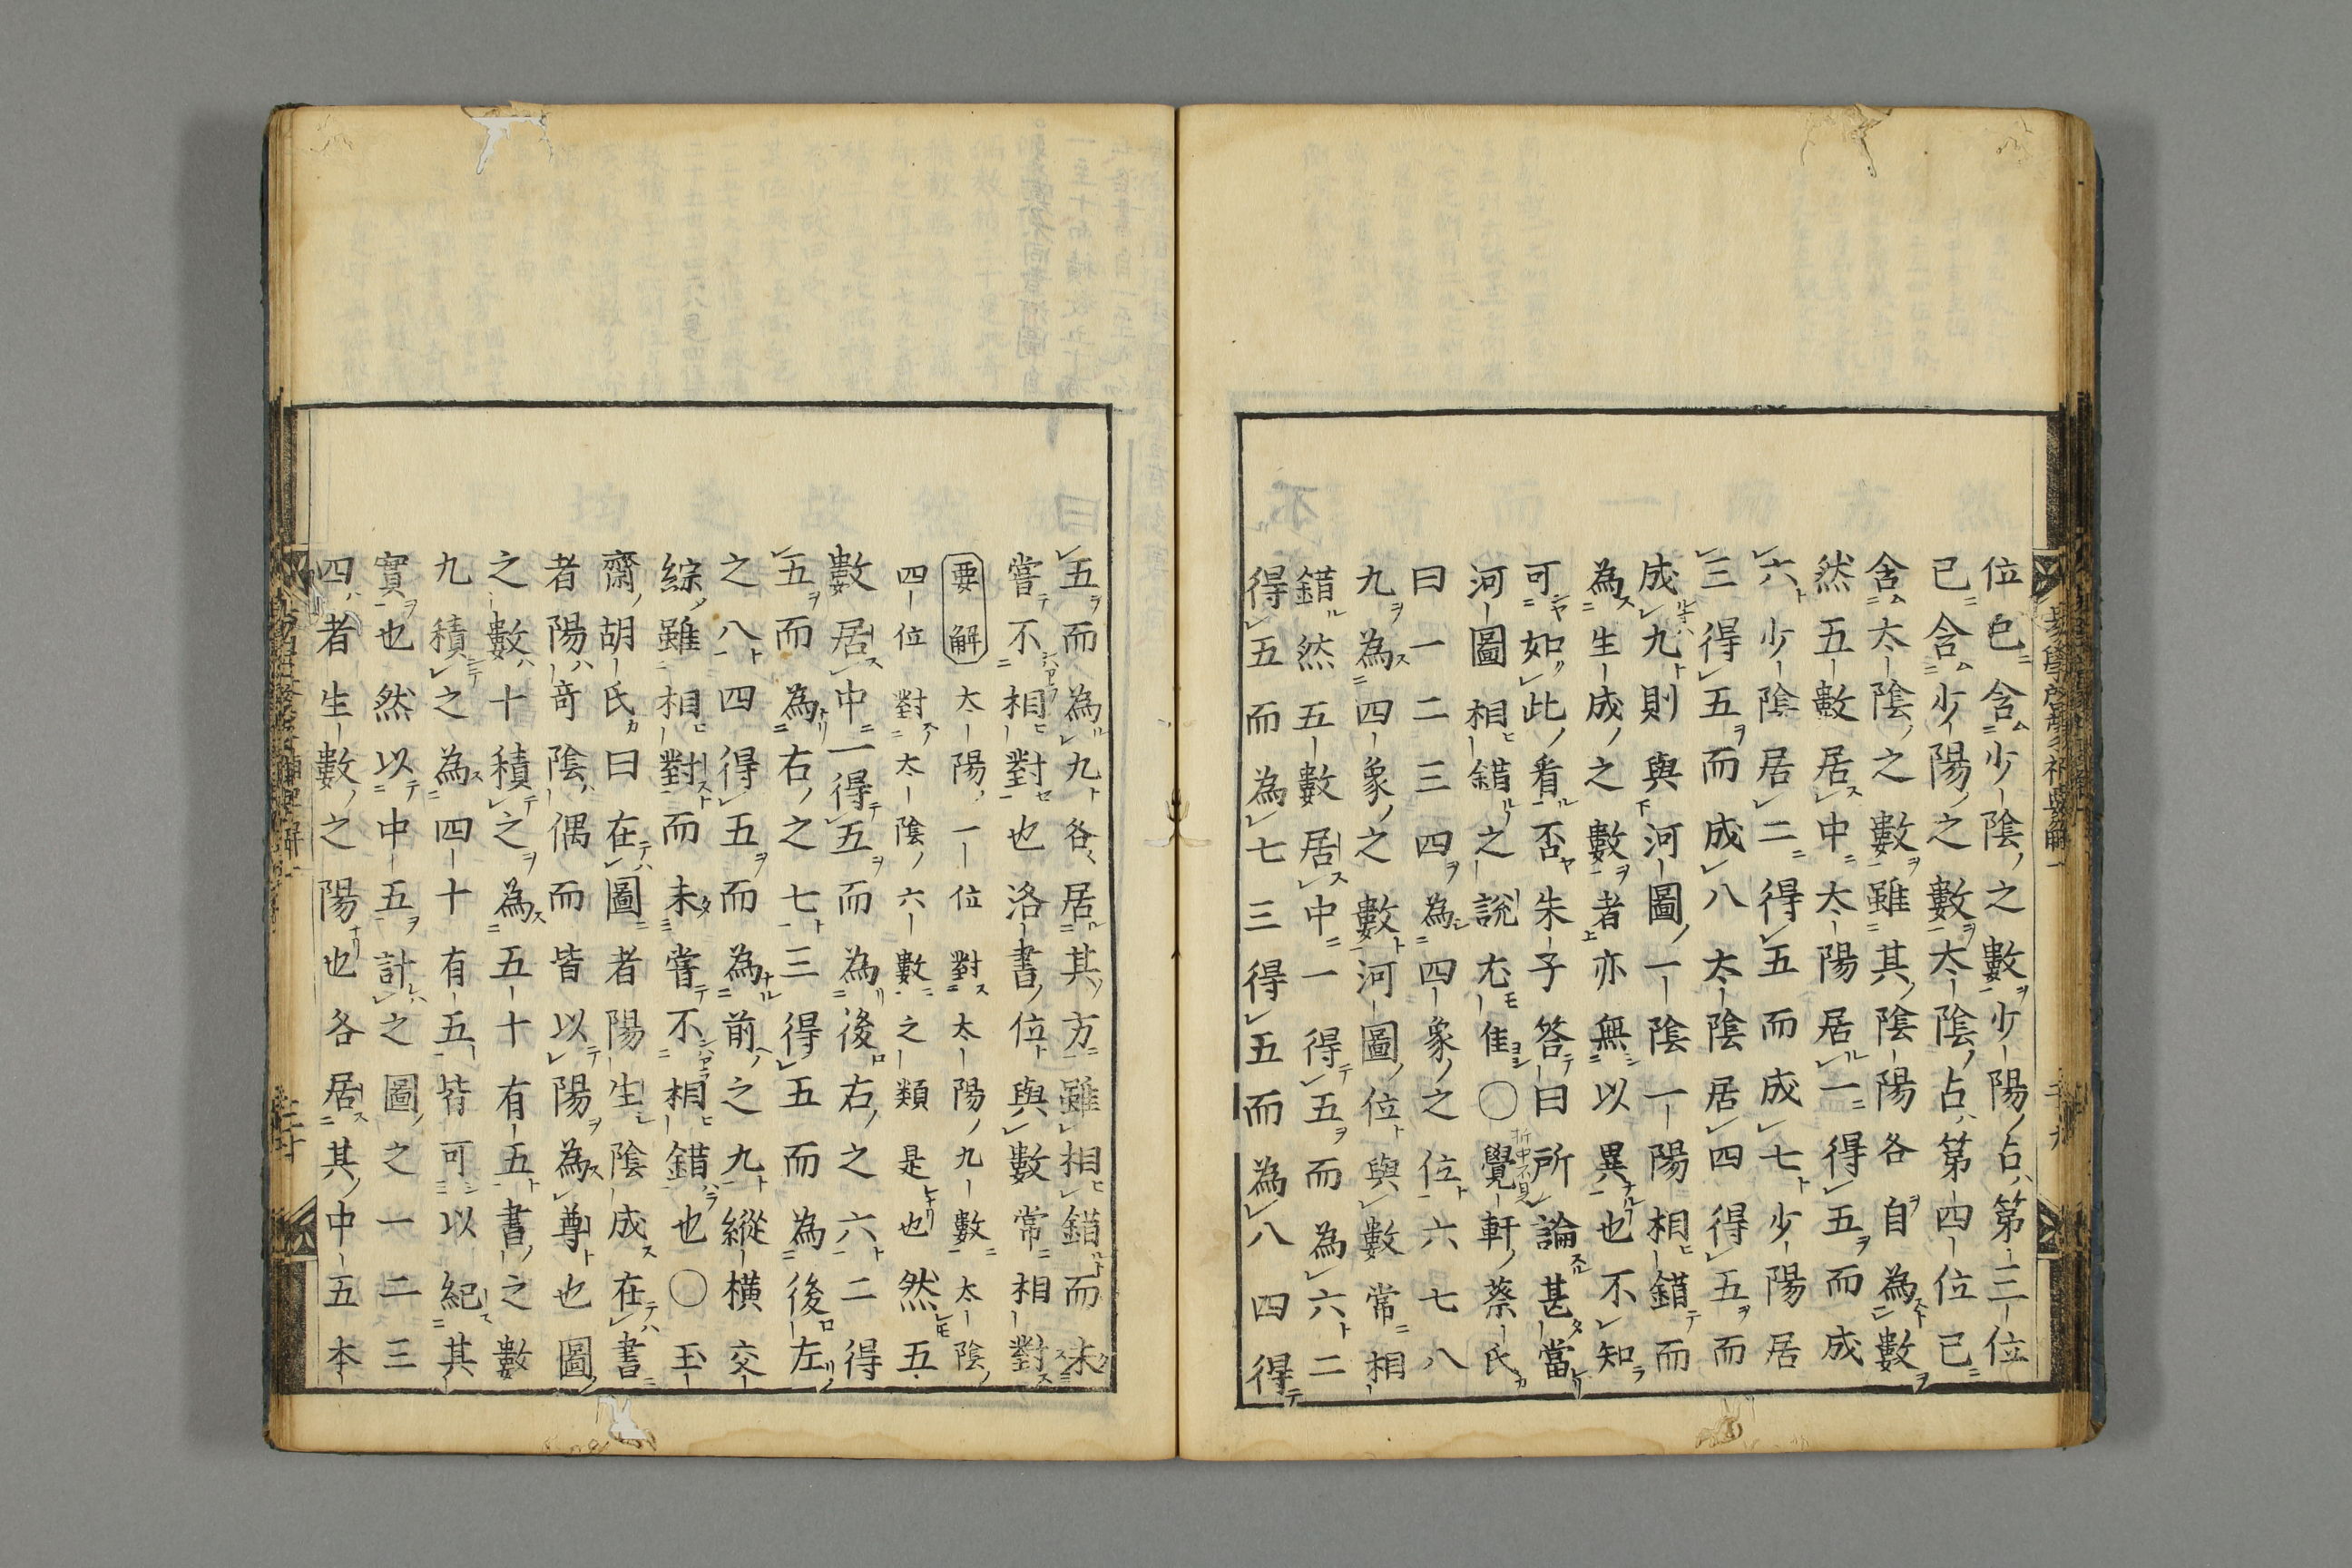 位已含少陰之數少陽占第三位
已含少陽之數太陰占第四位已
含太陰之數雖其陰陽各自為數
然五數居中太陽居一得五而成
六少陰居二得五而成七少陽居
三得五而成八太陰居四得五而
成九則與河圖一陰一陽相錯而
為生成之數者亦無以異也不知
可如此看否朱子答曰所論甚當
河圖相錯之說尤佳〇覺軒蔡氏
曰一二三四為四象之位六七八
九為四象之數河圖位與數常相
錯然五數居中一得五而為六二
得五而為七三得五而為八四得
五而為九各居其方雖相錯而未
嘗不相對也洛書位與數常相對
要解太陽一位對太陽九數太陰
四位對太陰六數之類是也然五
數居中一得五而為後右之六二得
五而為右之七三得五而為後左
之八四得五而為前之九縱橫交
綜雖相對而未嘗不相錯也〇玉
齋胡氏曰在圖者陽生陰成在書
者陽奇陰偶而皆以陽為尊也圖
之數十積之為五十有五書之數
九積之為四十有五皆可以紀其
實也然以中五計之圖之一二三
四者生數之陽也各居其中五本